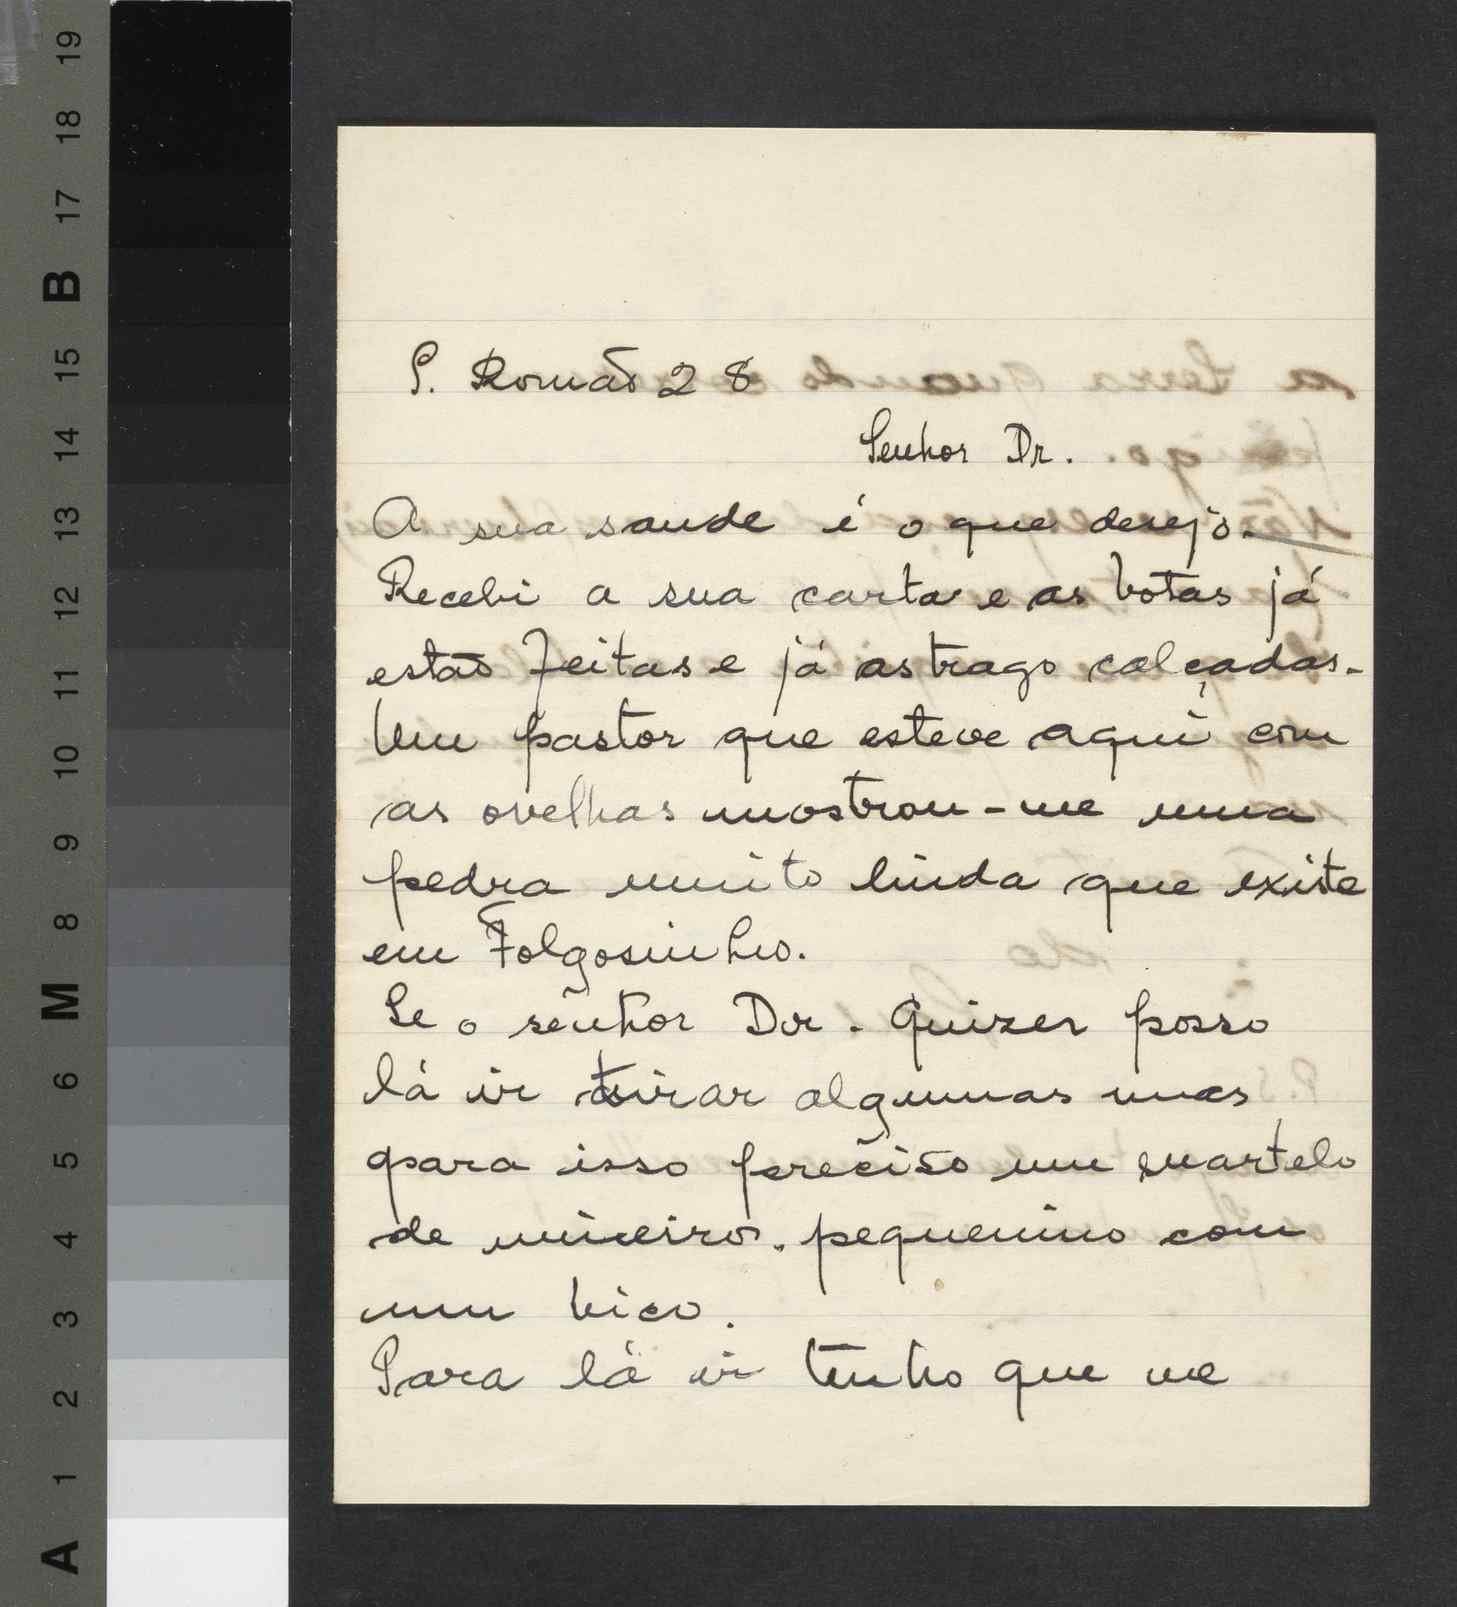 S. Romão 28
Senhor Dr.
A sua saude é o que desejo.
Recebi a sua carta e as botas já
estão feitas e já as trago calçadas.
Um pastor que esteve aqui com
as ovelhas mostrou-me uma
pedra muito linda que existe
em Folgosinho.
Se o senhor Dr. Quizer posso
lá ir tirar algumas mas
para isso preciso um martelo
de mineiro. pequenino com
um bico.
Para lá ir tenho que me
19
18
17
B
15
14
13
12
11
10
9
8
M
6
5
4
3
2
1
A